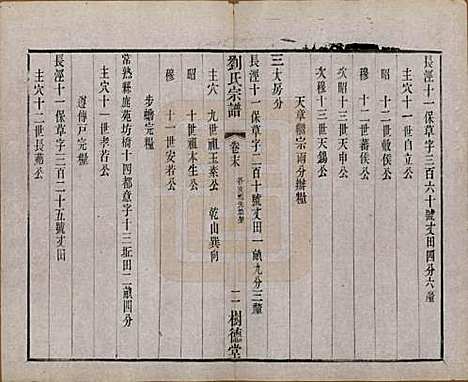 長涇十一保草字三百六十號丈田四分六釐
主穴 十一世自立公
昭 十二世敬侯公
穆 十二世蕃侯公
次昭十三世天申公
次穆十三世天錫公
天章繼宗兩分辦糧
三大房分
長涇十一保草字二百十號丈田一畝九分三釐
劉氏宗譜
卷末
二
樹德堂
主穴 九世祖玉素公 乾山巽向
昭 十世祖木生公
穆 十一世安若公
步蟾完糧
常熟縣鹿苑坊橋十四都意字十三坵田二畝四分
主穴十一世孝若公
遵傳戶完糧
長涇十一保草字三百二十五號丈田
主穴十二世長苑公